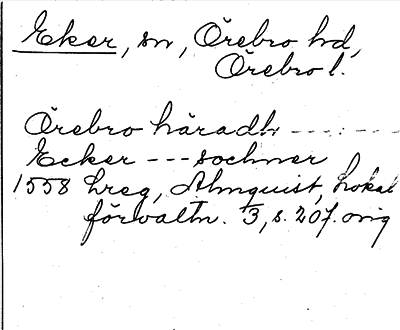 Eker, sn, Örebro hd,
Örebro l.
Örebro häradh - - - : - -
Ecker - - - sochner
1558 hreg, Almquist, Lokal
förvaltn. 3, s. 207. orig